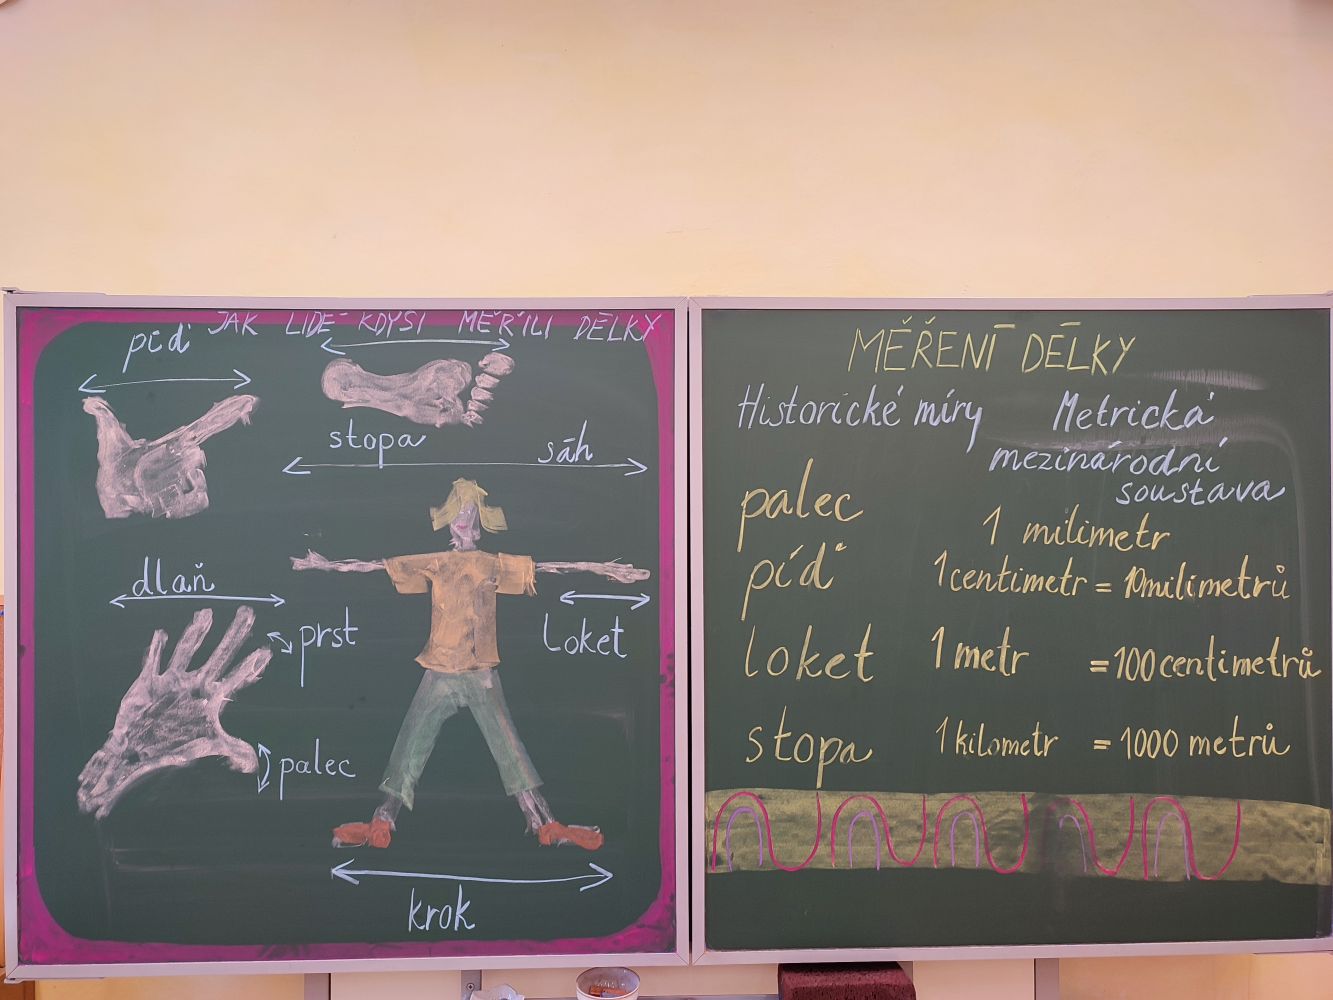 JAK LIDÉ KDYSI MĚŘILI DÉLKY
píď
stopa
sáh
dlaň
prst
loket
palec
krok
MĚŘENÍ DÉLKY
Historické míry
Metrická
mezinárodní
soustava
palec
1 milimetr
píď
1 centimetr = 10 milimetrů
loket
1 metr = 100 centimetrů
stopa
1 kilometr = 1000 metrů